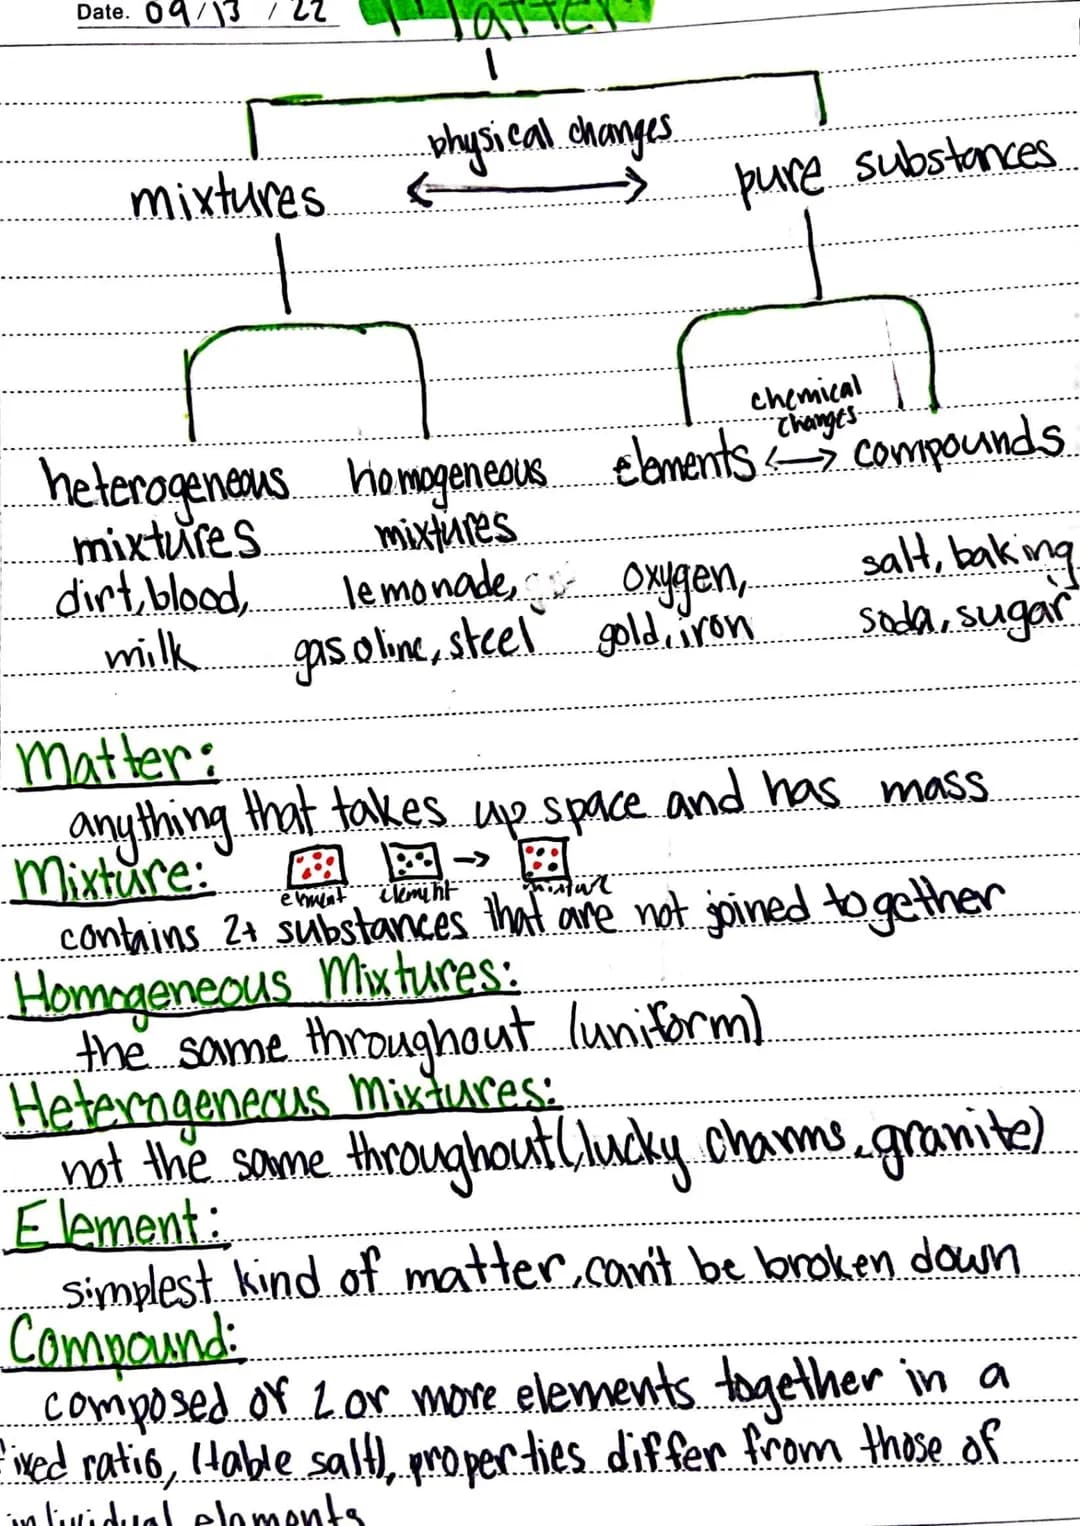 Date. 09/13/22
Matter
physical changes
mixtures
pure substances
chemical
changes
heterogeneous
mixtures
homogeneous
mixtures
elements
compounds
dirt, blood,
milk
lemonade,
gasoline, steel
oxygen,
gold, iron
salt, baking
soda, sugar
Matter:
anything that takes up space and has mass
Mixture:
element element mixture
contains 2+ substances that are not joined together
Homogeneous Mixtures:
the same throughout (uniform)
Heterogeneous Mixtures:
not the same throughout (lucky charms, granite)
Element:
simplest kind of matter, can't be broken down
Compound:
composed of 2 or more elements together in a
fixed ratio, (table salt), properties differ from those of
individual elements